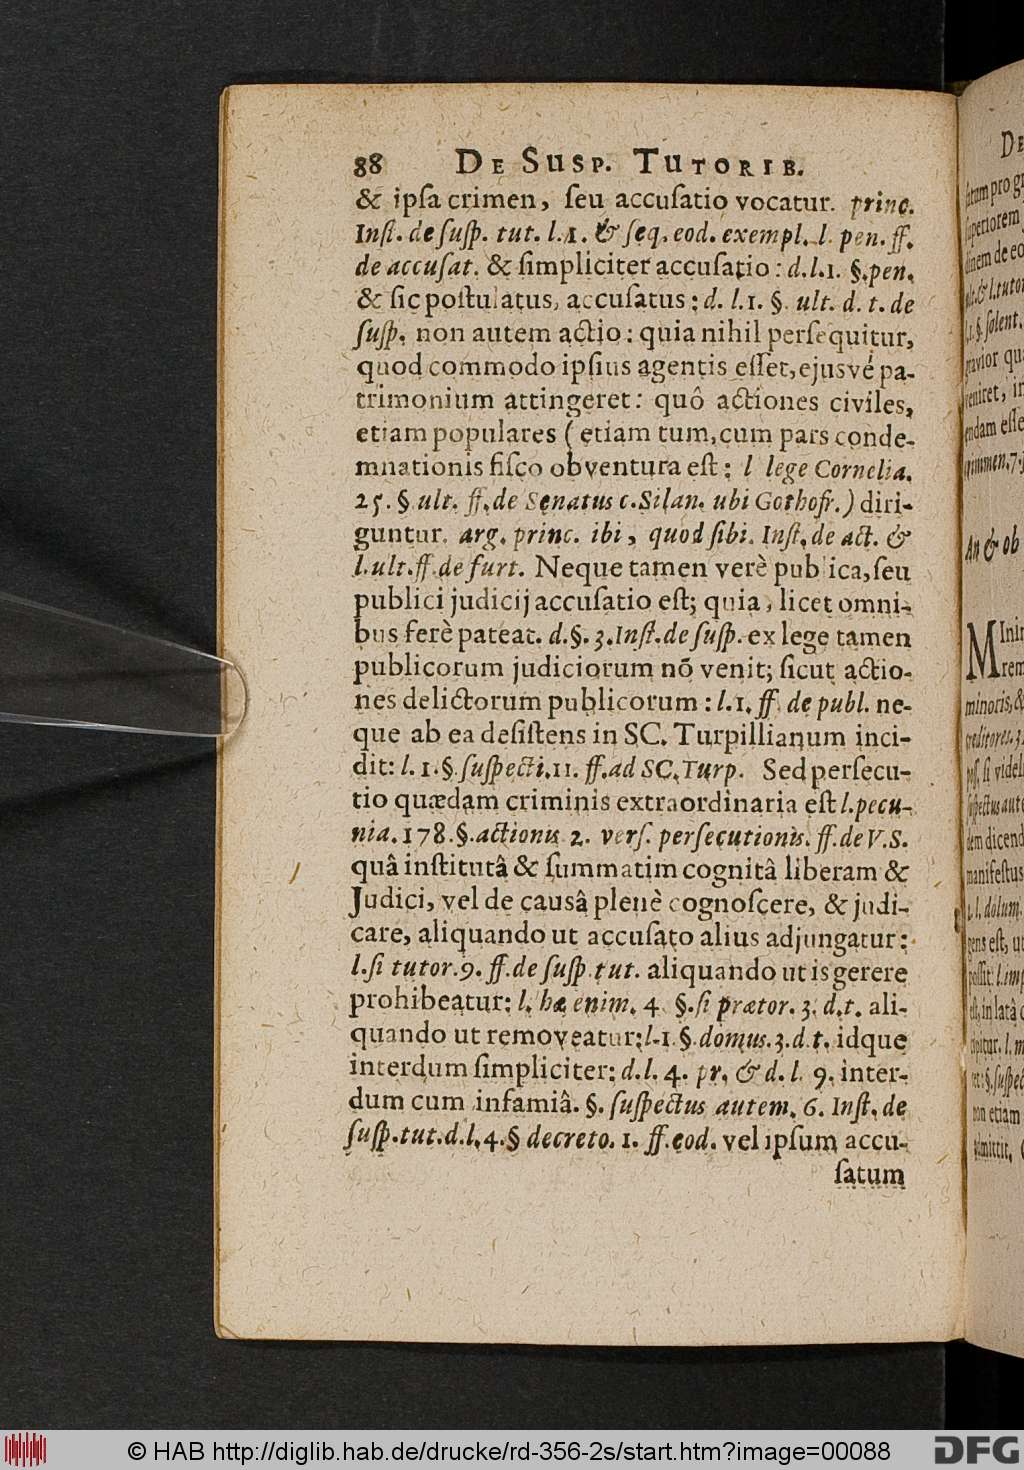 88 DE SUSP. TUTORIB.
& ipſa crimen, ſeu accuſatio vocatur. princ.
Inſt. de ſuſp. tut. l.1. & ſeq. eod. exempl. l. pen. ff.
de accuſat. & ſimpliciter accuſatio: d.l.1. §.pen.
& ſic poſtulatus, accuſatus: d. l.1. §. ult. d. t. de
ſuſp. non autem actio: quia nihil perſequitur,
quod commodo ipſius agentis eſſet, ejusvé pa-
trimonium attingeret: quô actiones civiles,
etiam populares (etiam tum, cum pars conde-
mnationis fiſco obventura eſt: l lege Cornelia.
25. § ult. ff. de Senatus c. Silan. ubi Gothofr.) diri-
guntur. arg. princ. ibi, quod ſibi. Inſt. de act. &
l. ult. ff. de furt. Neque tamen verè pub ica, ſeu
publici judicij accuſatio eſt; quia, licet omni-
bus ferè pateat. d.§. 3. Inſt. de ſuſp. ex lege tamen
publicorum judiciorum nō venit; ſicut actio-
nes delictorum publicorum: l.1. ff. de publ. ne-
que ab ea deſiſtens in SC. Turpillianum inci-
dit: l. 1 §. ſuſpecti. 11. ff. ad SC. Turp. Sed perſecu-
tio quædam criminis extraordinaria eſt l. pecu-
nia. 178. §. actionis 2. verſ. perſecutionis. ff. de V.S.
quâ inſtitutâ & ſummatim cognitâ liberam &
Judici, vel de causâ plenè cognoſcere, & judi-
care, aliquando ut accuſato alius adjungatur:
l. ſi tutor. 9. ff. de ſuſp. tut. aliquando ut is gerere
prohibeatur: l. hæ enim. 4 §. ſi prætor. 3. d.t. ali-
quando ut removeatur; l. 1 §. domus. 3. d. t. idque
interdum ſimpliciter: d. l. 4. pr. & d. l 9. inter-
dum cum infamiâ. §. ſuſpectus autem. 6. Inſt. de
ſuſp. tut. d. l. 4. § decreto. 1. ff. eod. vel ipſum accu-
ſatum
DE
ſatum pro
ſuperiorem
dinem de
ult. & l. tutor
§. ſolent.
gravior
veniret,
endam eſſe
An & ob
MIni
minoris, &
creditores.
ſi videl
ſuſpectus
dem dicend
manifeſtus
l. dolum.
gens eſt, ut
poſſit: l. imp
eſt, in latâ
§. ſuſpec
non etiam
© HAB http://diglib.hab.de/drucke/rd-356-2s/start.htm?image=00088
DFG